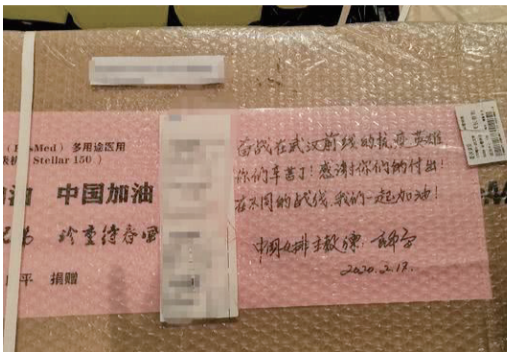 （ResMed）多用途医用
Stellar 150 ）
油 中国加油
珍重待春风
平 捐赠
奋战在武汉前线的抗疫英雄
你们辛苦了！感谢你们的付出！
在不同的战线，我们一起加油！
中国女排主教练 郎平
2020.2.13.